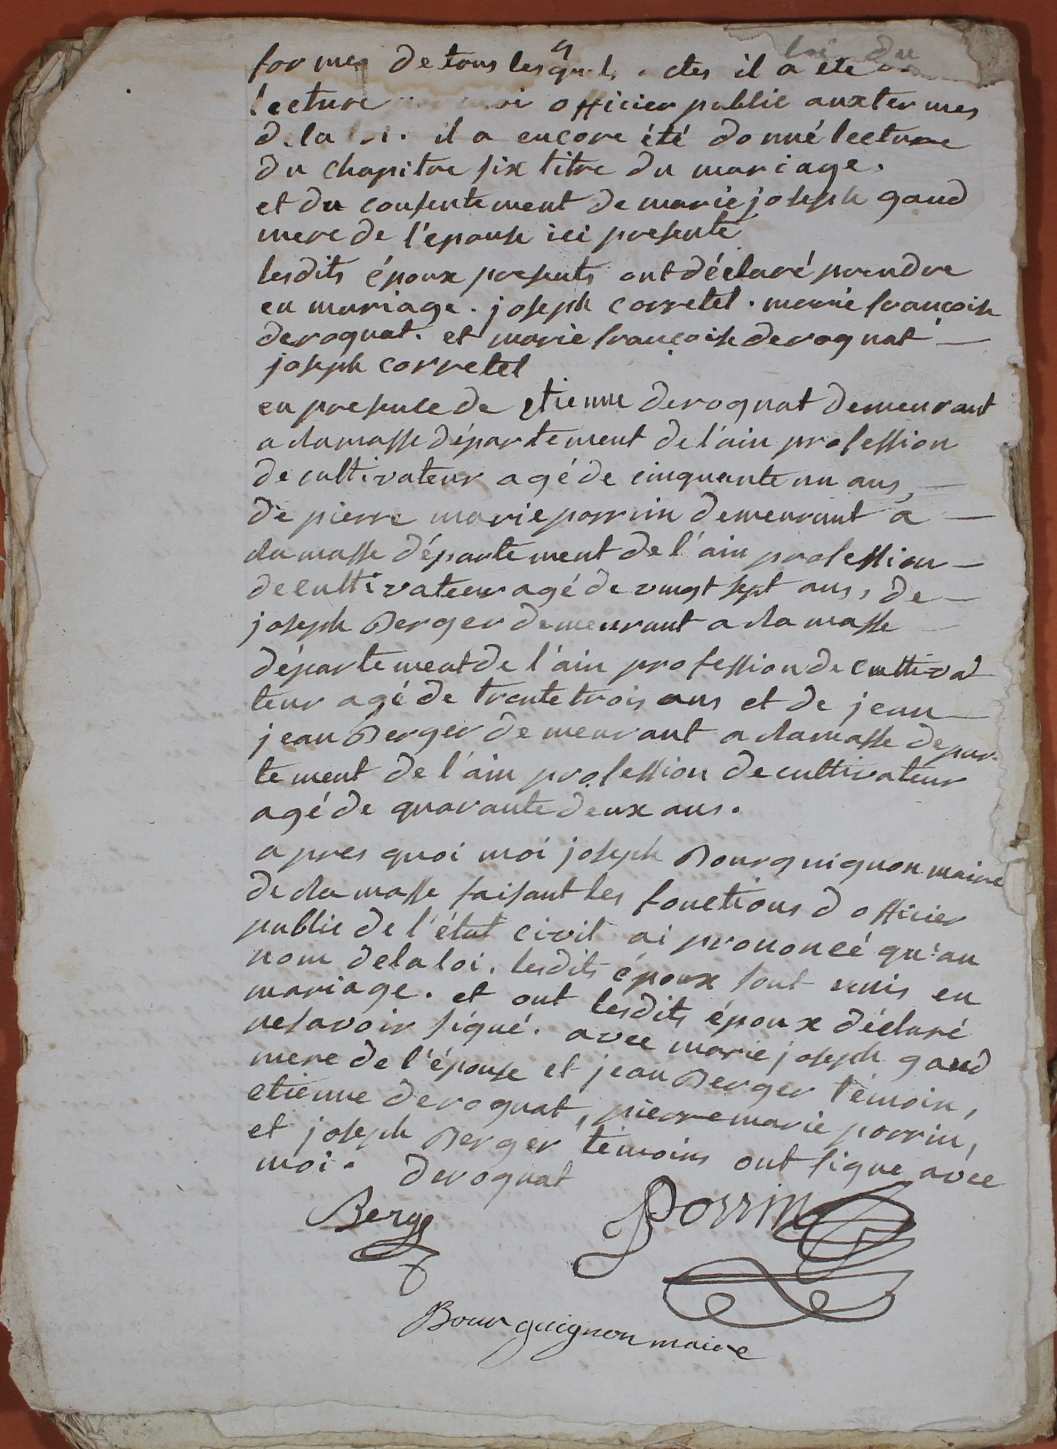 formes de tous lesquels actes il a été
lecture moi officier public aux termes
de la loi. il a encore été donné lecture
du chapitre six titre du mariage.
et du consentement de marie joseph gaud
mere de l'épouse ici presente
lesdits époux presents ont déclaré prendre
en mariage. joseph corretel. marie françoise
derognat. et marie françoise derognat —
joseph corretel
en presence de etienne derognat demeurant
a lamasse département de l'ain profession
de cultivateur agé de cinquante un ans, —
de pierre marie porrin demeurant a —
lamasse département de l'ain profession —
de cultivateur agé de vingt sept ans, de —
joseph Berger demeurant a lamasse
département de l'ain profession de cultiva
teur agé de trente trois ans et de jean —
jean Berger demeurant a lamasse depar-
tement de l'ain profession de cultivateur
agé de quarante deux ans.
apres quoi moi joseph Bourguignon maire
de lamasse faisant les fonctions d officier
public de l'état civil ai prononcé qu'au
nom de la loi. lesdits époux sont unis en
mariage. et ont lesdits époux déclaré
ne savoir signé. avec marie joseph gaud
mere de l'épouse et jean Berger témoin,
etienne derognat, pierre marie porrin,
et joseph Berger témoins ont signe avec
moi. derognat
Berger Porrin
Bourguignon maire